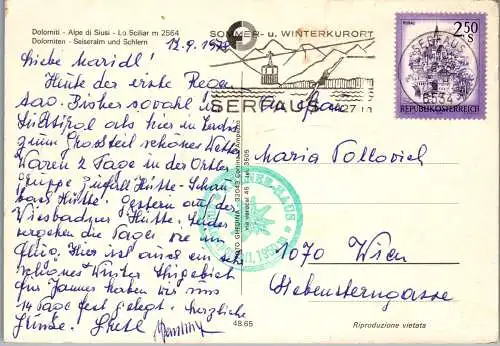 Dolomiti - Alpe di Siusi - Lo Sciliar m 2564
Dolomiten - Seiseralm und Schlern
12.9.1978
Liebe Maridl!
Heute der erste Regen
tag. Bisher sowohl in
Südtirol als hier in Ladis
zum Grossteil schönes Wetter
Waren 2 Tage in der Ortler
gruppe Zufall Hütte - Schau
bach Hütte. Gestern auf der
Wiesbadner Hütte. Leider
vergehen die Tage wie im
Flug. Hier ist auch ein sehr
schönes Winter Skigebiet
für Jänner haben wir uns
14 Tage fest gelegt. Herzliche
Grüsse. Gretl
SOMMER- u. WINTERKURORT
SERFAUS
SERFAUS
6534
2.50
S
MURAU
REPUBLIK ÖSTERREICH
Maria Pollovich
1070 Wien
Siebensterngasse
FOTO GHEDINA - 32043 Cortina Ampezzo
via verocai 45 tel. 3505
48.65
Riproduzione vietata